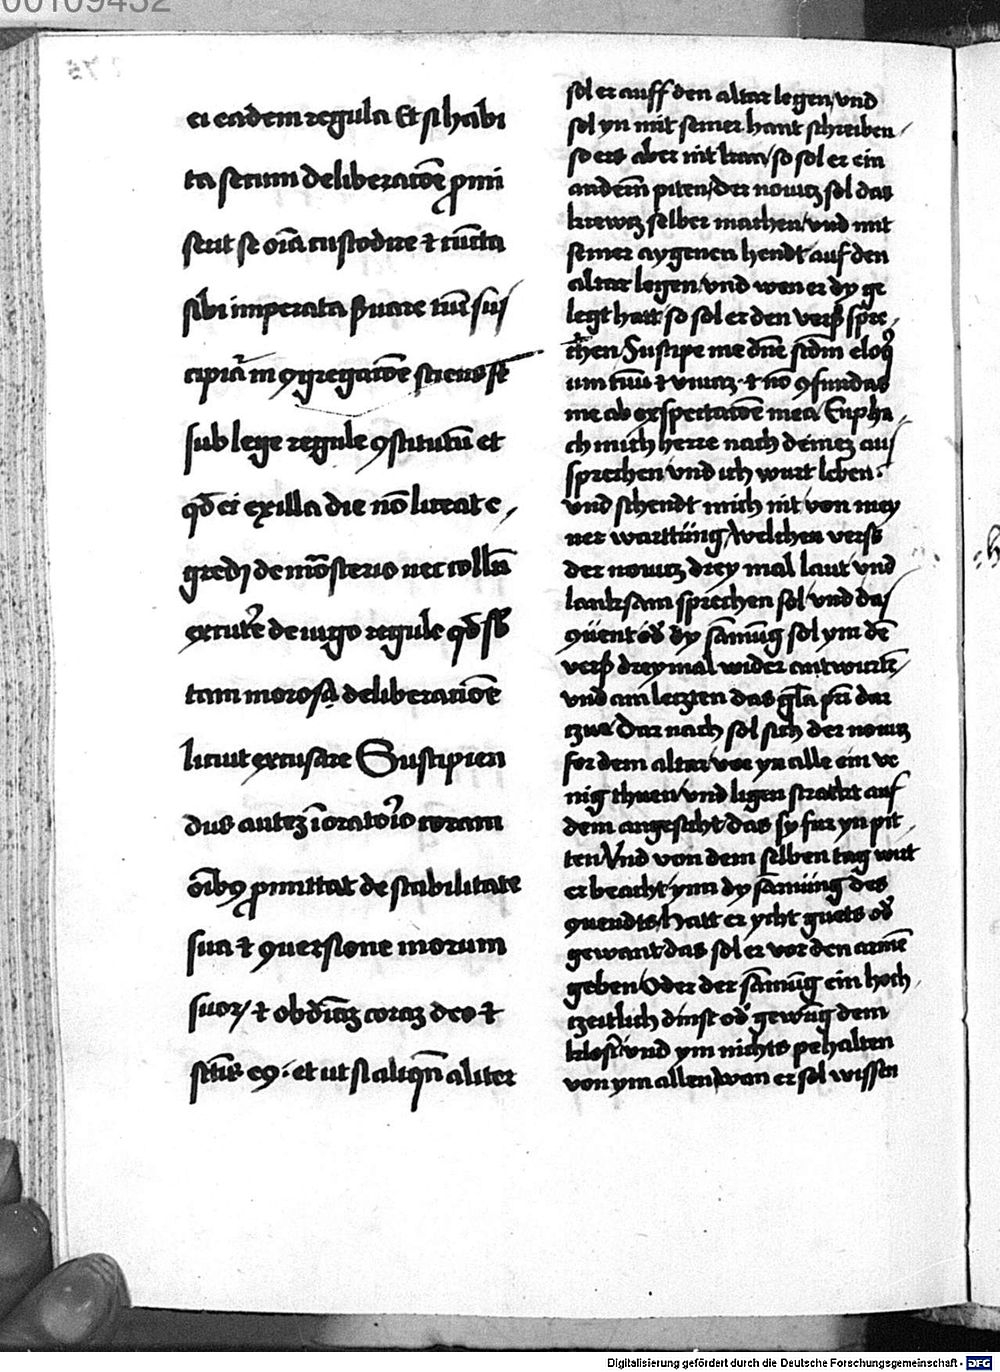 00109452
ei eadem regula Et si habi
ta secum deliberatōe ꝓmi
serit se oīa custodire ⁊ cūcta
sibi imperata ẜuare tūc sus
cipiat᷑ in ꝯgregatōe sciens se
sub lege regule ꝯstitutū et
qd̄ ei ex illa die nō liceat e
gredi de mōsterio nec collū
excutẽ de iugo regule qd̄ sb̄
tam morosā deliberatiōe
licuit excusare Suscipien
dus autez ī oratorio coram
oībꝫ ꝓmittat de stabilitate
sua ⁊ ꝯuersione morum
suorꝝ ⁊ obdīaz coraz deo ⁊
sctīs eꝯ · et ut si aliqn̄ aliter
sol er auff den altar legen, vnd
sol yn mit seiner hant schreiben
so ers aber nit kan so sol er ein
anderm piten, der nouitz sol das
krewtz selber machen vnd mit
seiner aygenen hendt auf den
altar legen vnd wen er dy ge
legt hatt so sol er den verß spre
chen Suscipe me dn̄e scdm eloq
um tuū ⁊ viuaz · ⁊ nō ꝯfundas
me ab expectatōe mea Enpha
ch mich herre nach deinez aus
sprechen vnd ich wurt leben ·
vnd schendt mich nit von mey
ner warttūng welchen verß
der nouitz drey mal laut vnd
lanksam sprechen sol vnd das
ꝯuent od̄ dy samūg sol ym dē
verß drey mal wider antwurtē
vnd am letzten das gl̄a pr̄i dar
tzue Dar nach sol sich der nouitz
for dem altar vor yn alle ein ve
nig thuen vnd ligen strackt auf
dem angesicht das sy fur yn pit
ten Vnd von dem selben tag wirt
er beacht ynn dy samūng des
ꝯuendts hatt er ycht guets od̄
gewant das sol er vor den armē
geben Oder der samūg ein hoch
tzeitlich dinst od̄ gewūg dem
kloster vnd ym nichts pehalten
von ym allen wan er sol wissen
Digitalisierung gefördert durch die Deutsche Forschungsgemeinschaft - DFG